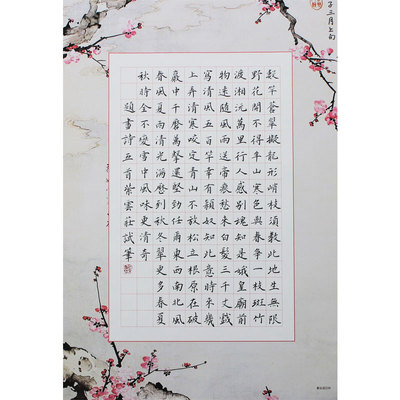 數竿蒼翠擬龍形峭拔須教此地生無限
野花開不得半山寒色與春爭一枝斑竹
渡湘沅萬里行人感別魂知是娥皇廟前
物遠隨風雨送啼痕愁來白髮三千丈戲
寫清風五百竿幸有穎奴知此意時來幾
上弄清寒咬定青山不放松立根原在破
巖中千磨萬擊還堅勁任爾東西南北風
春風夏雨清光滿磨到秋冬翠更多春夏
秋時全不變雪中風味更清奇
題畫詩五首紫雲莊試筆
子三月上旬